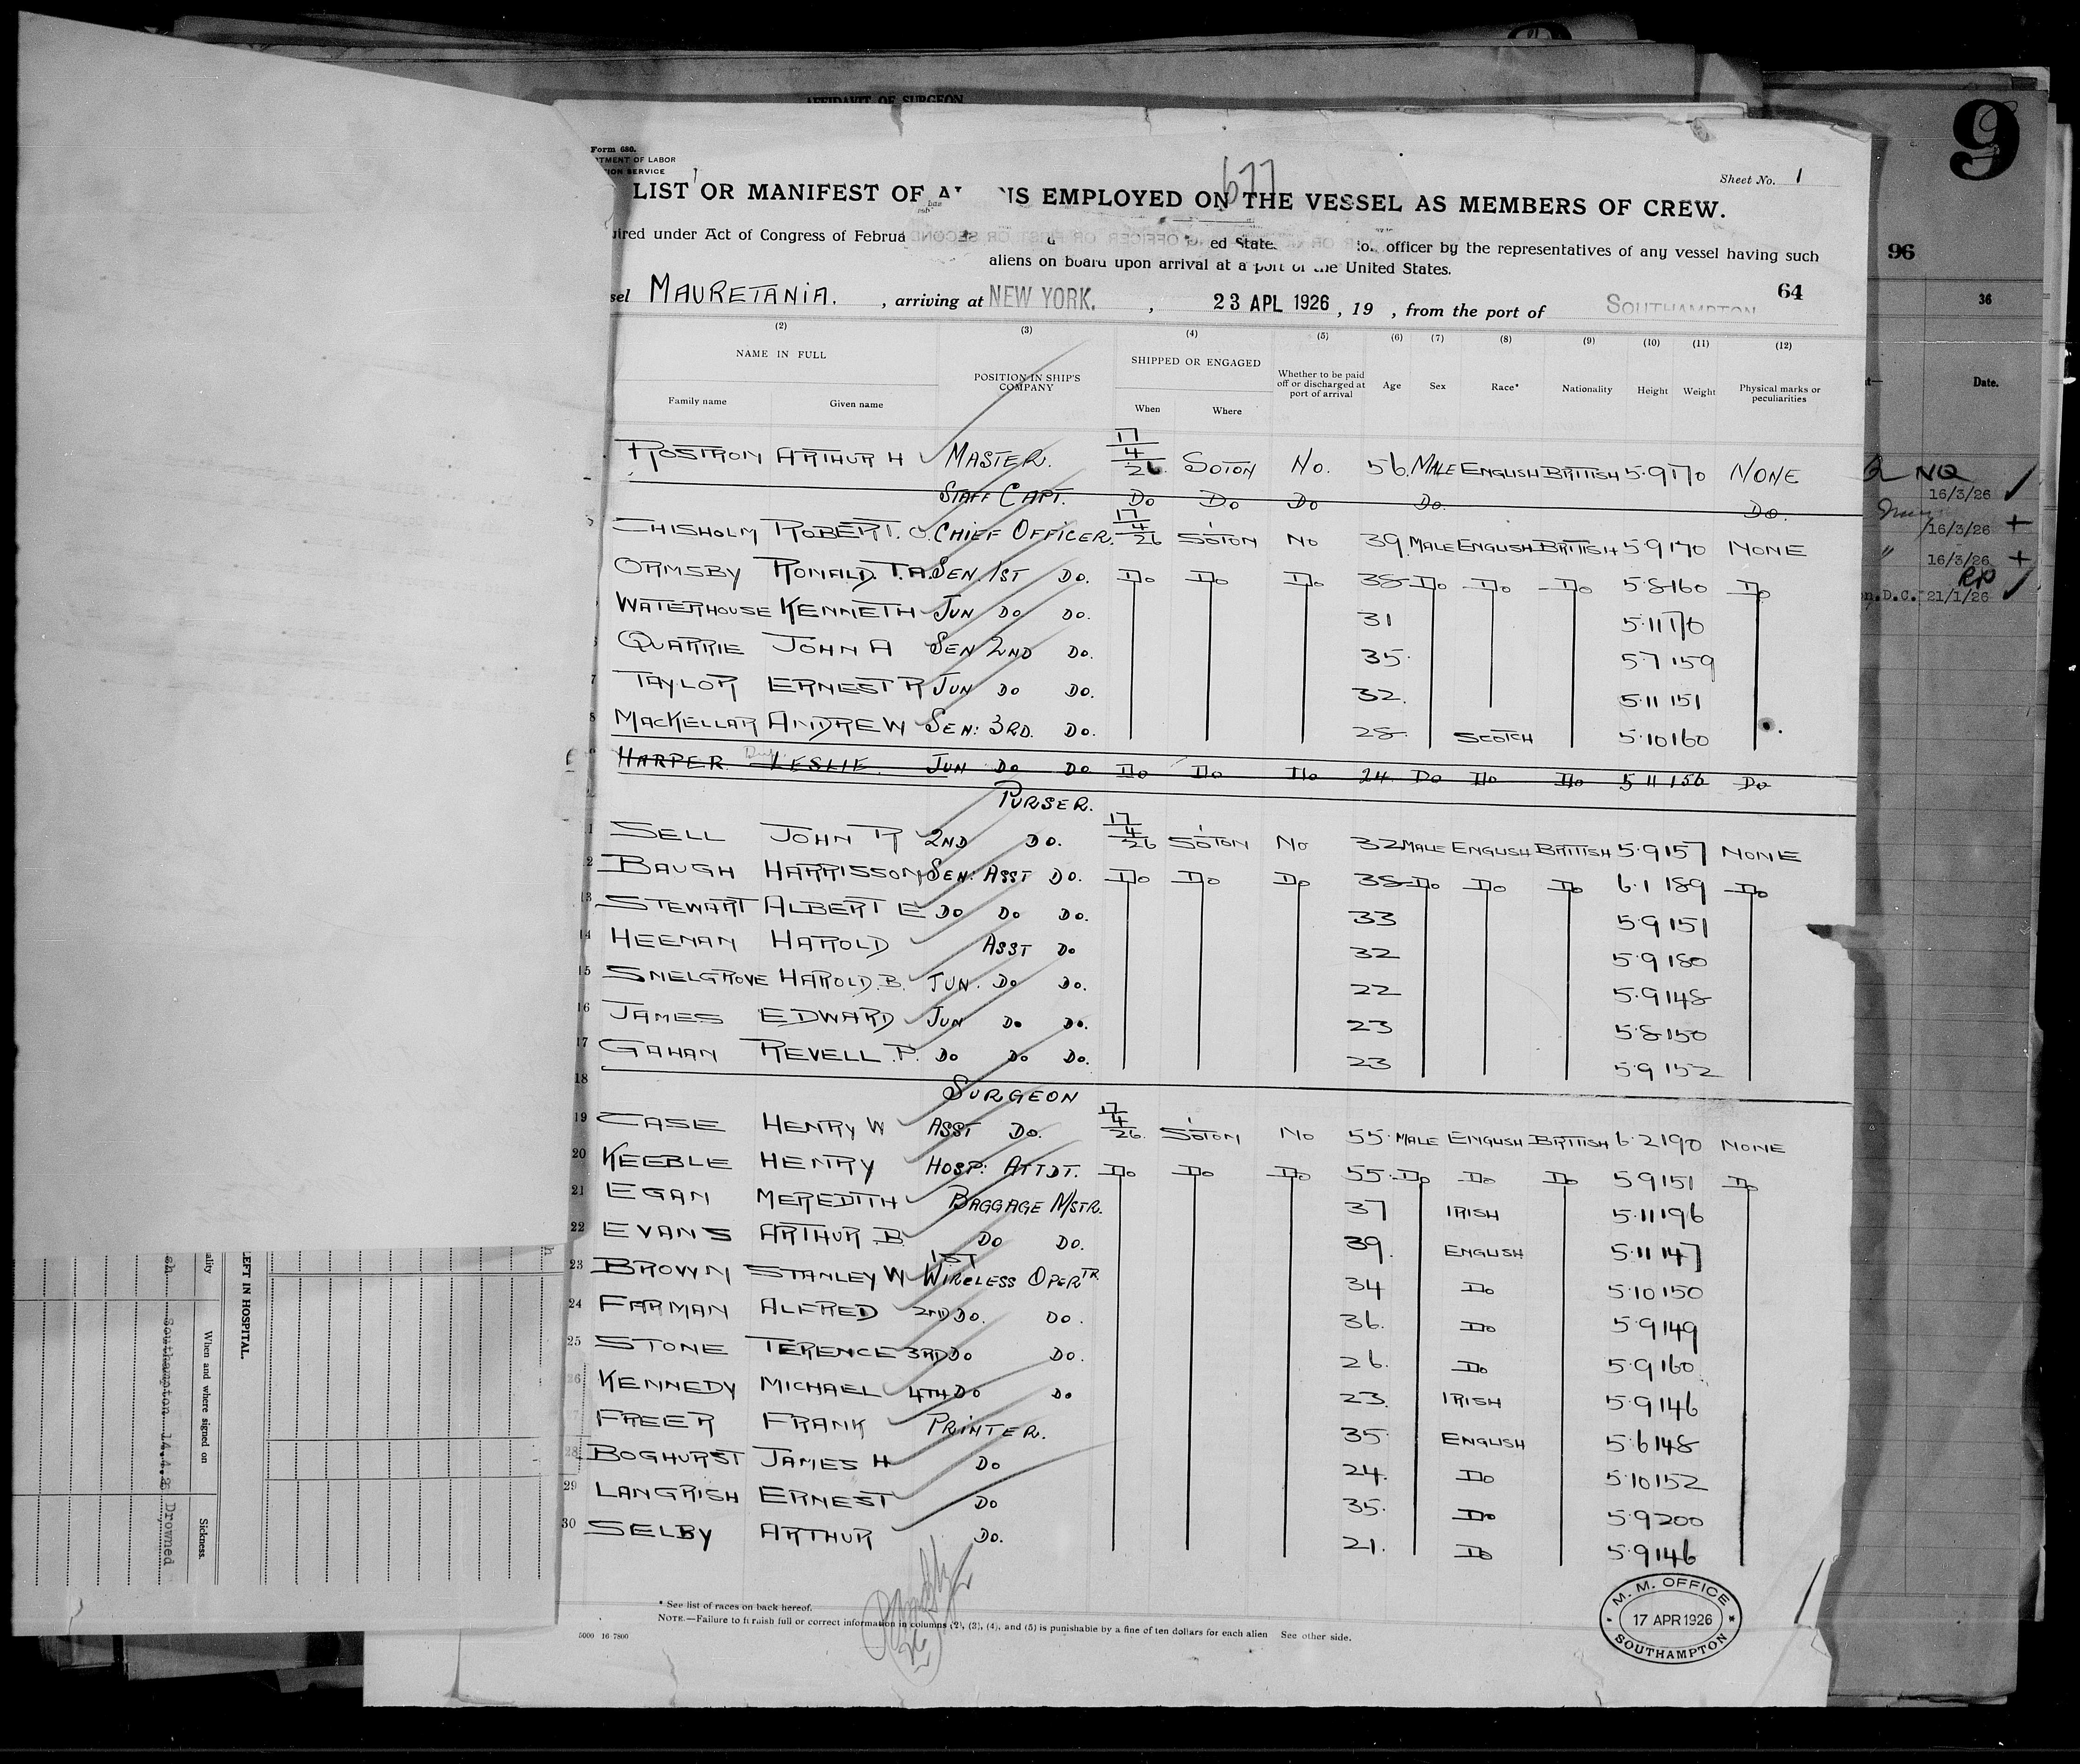 AFFIDAVIT OF SURGEON
9
Form 680.
TMENT OF LABOR
ION SERVICE
677
Sheet No. 1
LIST OR MANIFEST OF A NS EMPLOYED ON THE VESSEL AS MEMBERS OF CREW.
ired under Act of Congress of Februa ed State officer by the representatives of any vessel having such
aliens on board upon arrival at a port of the United States.
96
64
sel MAURETANIA. , arriving at NEW YORK. , 23 APL 1926 , 19 , from the port of SOUTHAMPTON
36
(2) (3) (4) (5) (6) (7) (8) (9) (10) (11) (12)
NAME IN FULL POSITION IN SHIP'S COMPANY SHIPPED OR ENGAGED Whether to be paid off or discharged at port of arrival Age Sex Race* Nationality Height Weight Physical marks or peculiarities
Date.
Family name Given name When Where
ROSTRON ARTHUR H MASTER. 17/4/26 SOTON NO. 56. MALE ENGLISH BRITISH 5.9 170 NONE
STAFF CAPT. DO DO DO DO. DO.
CHISHOLM ROBERT. O. CHIEF OFFICER. 17/4/26 S'OTON NO 39. MALE ENGLISH BRITISH 5.9 170 NONE
ORMSBY RONALD. T.A. SEN. 1ST DO. DO DO DO 38 DO DO DO 5.8 160 DO
WATERHOUSE KENNETH JUN DO DO. 31 5.11 170
QUARRIE JOHN A SEN 2ND DO. 35. 5.7 159
7 TAYLOR ERNEST R JUN DO DO. 32. 5.11 151
8 MACKELLAR ANDREW SEN: 3RD. DO. 28. SCOTCH 5.10 160
HARPER LESLIE. JUN DO DO DO DO DO 24 DO DO DO 5 11 156 DO
PURSER.
1 SELL JOHN R 2ND DO. 17/4/26 S'OTON NO 32 MALE ENGLISH BRITISH 5.9 157 NONE
2 BAUGH HARRISSON SEN: ASST DO. DO DO DO 38 DO DO DO 6.1 189 DO
13 STEWART ALBERT E DO DO DO. 33 5.9 151
14 HEENAN HAROLD ASST DO 32 5.9 180
15 SNELGROVE HAROLD. B. JUN. DO DO. 22 5.9 148
16 JAMES EDWARD JUN DO DO. 23 5.8 150
17 GAHAN REVELL. P. DO DO DO. 23 5.9 152
18 SURGEON
19 CASE HENRY W ASST DO. 17/4/26. S'OTON NO 55. MALE ENGLISH BRITISH 6.2 190 NONE
20 KEEBLE HENRY HOSP: ATTDT. DO DO DO 55. DO DO DO 5.9 151 DO
21 EGAN MEREDITH BAGGAGE MSTR. 37 IRISH 5.11 196
22 EVANS ARTHUR B. DO DO. 39. ENGLISH 5.11 147
23 BROWN STANLEY W 1ST WIRELESS OPERTR 34 DO 5.10 150
24 FARMAN ALFRED 2ND DO. DO. 36. DO 5.9 149
25 STONE TERENCE 3RD DO DO. 26. DO 5.9 160
26 KENNEDY MICHAEL 4TH DO DO 23. IRISH 5.9 146
FREER FRANK PRINTER. 35 ENGLISH 5.6 148
28 BOGHURST JAMES H DO 24. DO 5.10 152
29 LANGRISH ERNEST DO 35. DO 5.9 200
30 SELBY ARTHUR DO. 21. DO 5.9 146
NQ
16/3/26
16/3/26 +
" 16/3/26 +
RP
n.D.C. 21/1/26
* See list of races on back hereof.
NOTE.—Failure to furnish full or correct information in columns (2), (3), (4), and (5) is punishable by a fine of ten dollars for each alien See other side.
5000 16-7800
M. M. OFFICE
17 APR 1926
SOUTHAMPTON
LEFT IN HOSPITAL.
ality When and where signed on Sickness.
sh Southampton 14.4.26 Drowned